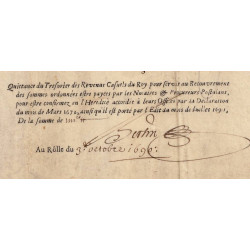 Quittance du Tresorier des Revenus Casuels du Roy pour servir au Recouvrement
des sommes ordonnées estre payées par les Notaires & Procureurs Postulans,
pour estre confirmez en l'Heredité accordée à leurs Offices par la Declaration
du mois de Mars 1672. ainsi qu'il est porté par l'Edit du mois de Juillet 1691.
De la somme de
Au Rôlle du 3e octobre 1696.